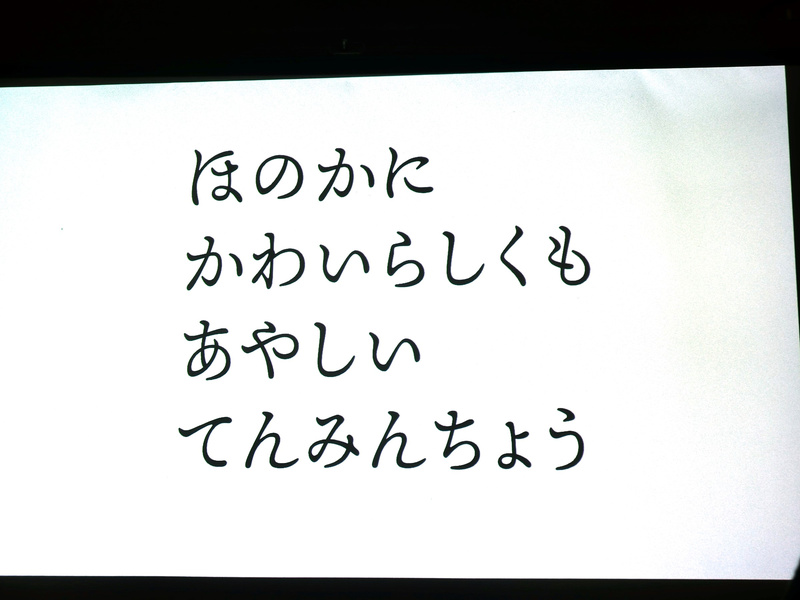 ほのかに
かわいらしくも
あやしい
てんみんちょう